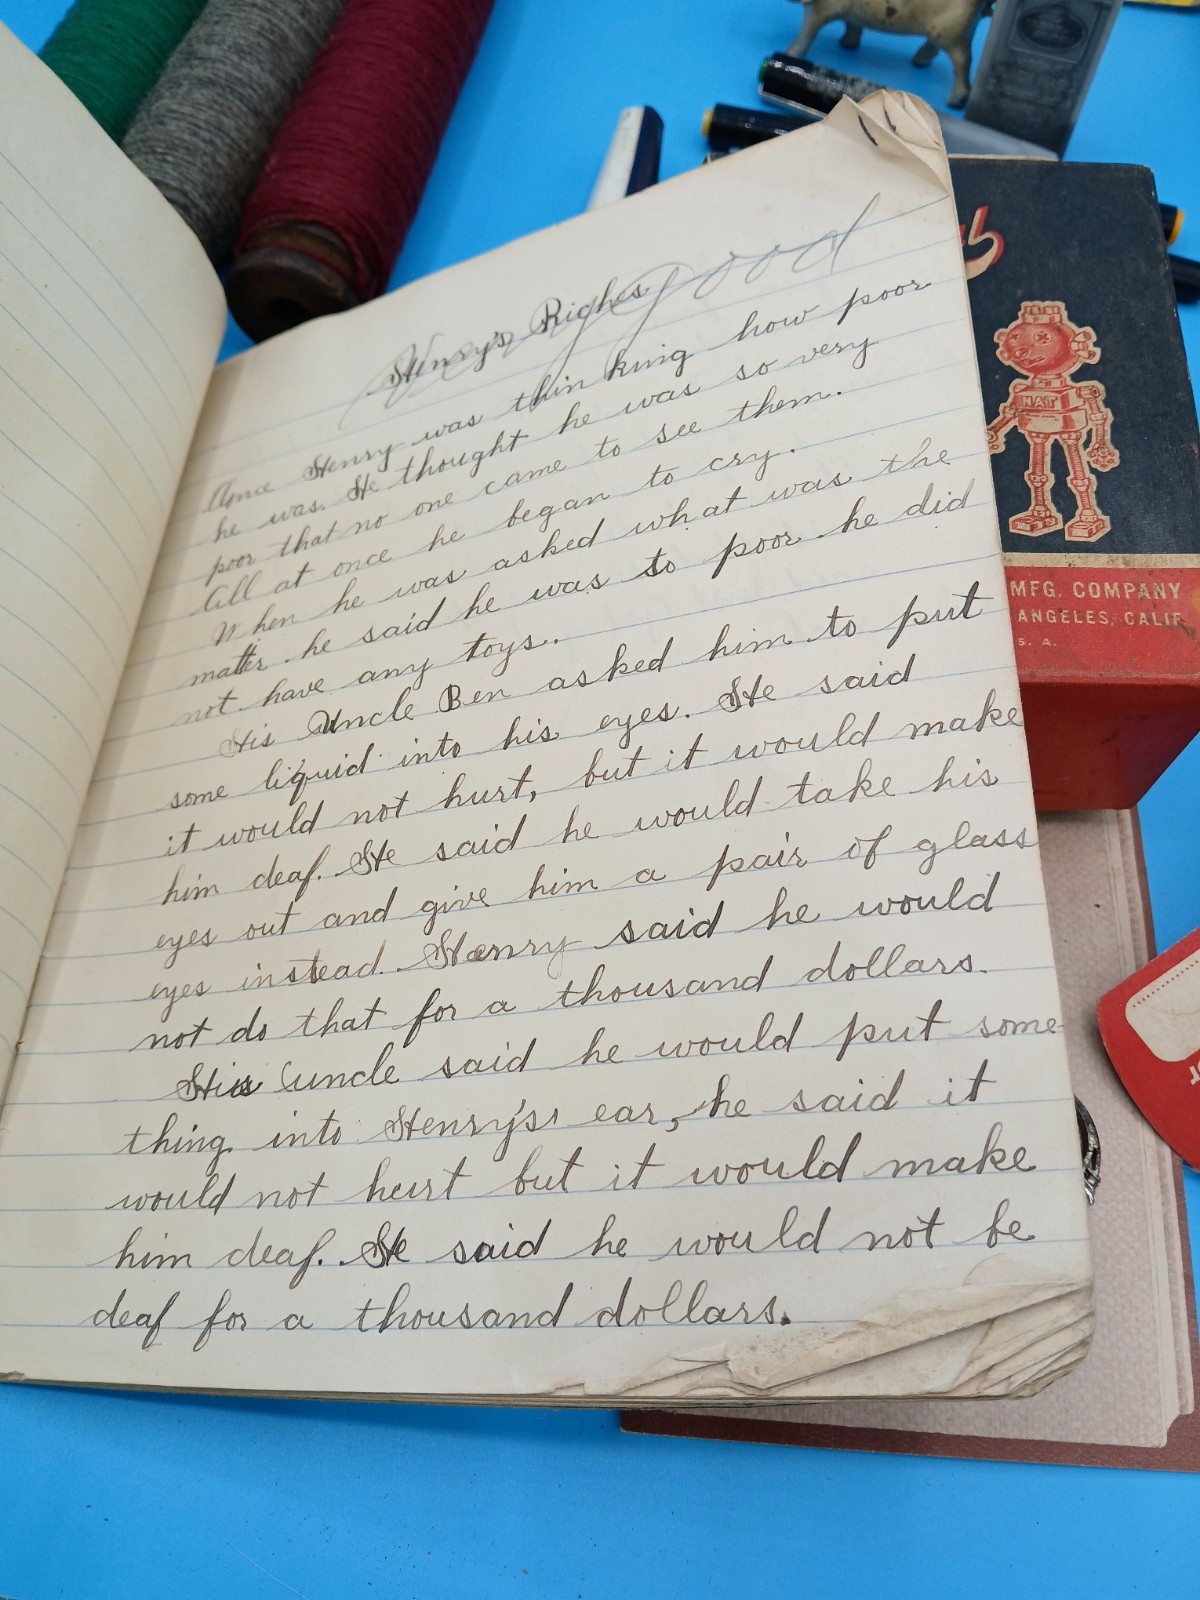 Henry's Riches
good
Once Henry was thinking how poor
he was. He thought he was so very
poor that no one came to see them.
All at once he began to cry.
When he was asked what was the
matter he said he was to poor he did
not have any toys.
His Uncle Ben asked him to put
some liquid into his eyes. He said
it would not hurt, but it would make
him deaf. He said he would take his
eyes out and give him a pair of glass
eyes instead. Henry said he would
not do that for a thousand dollars.
His Uncle said he would put some
thing into Henry's ear, he said it
would not hurt but it would make
him deaf. He said he would not be
deaf for a thousand dollars.
NAT
MFG. COMPANY
ANGELES, CALIF.
S. A.